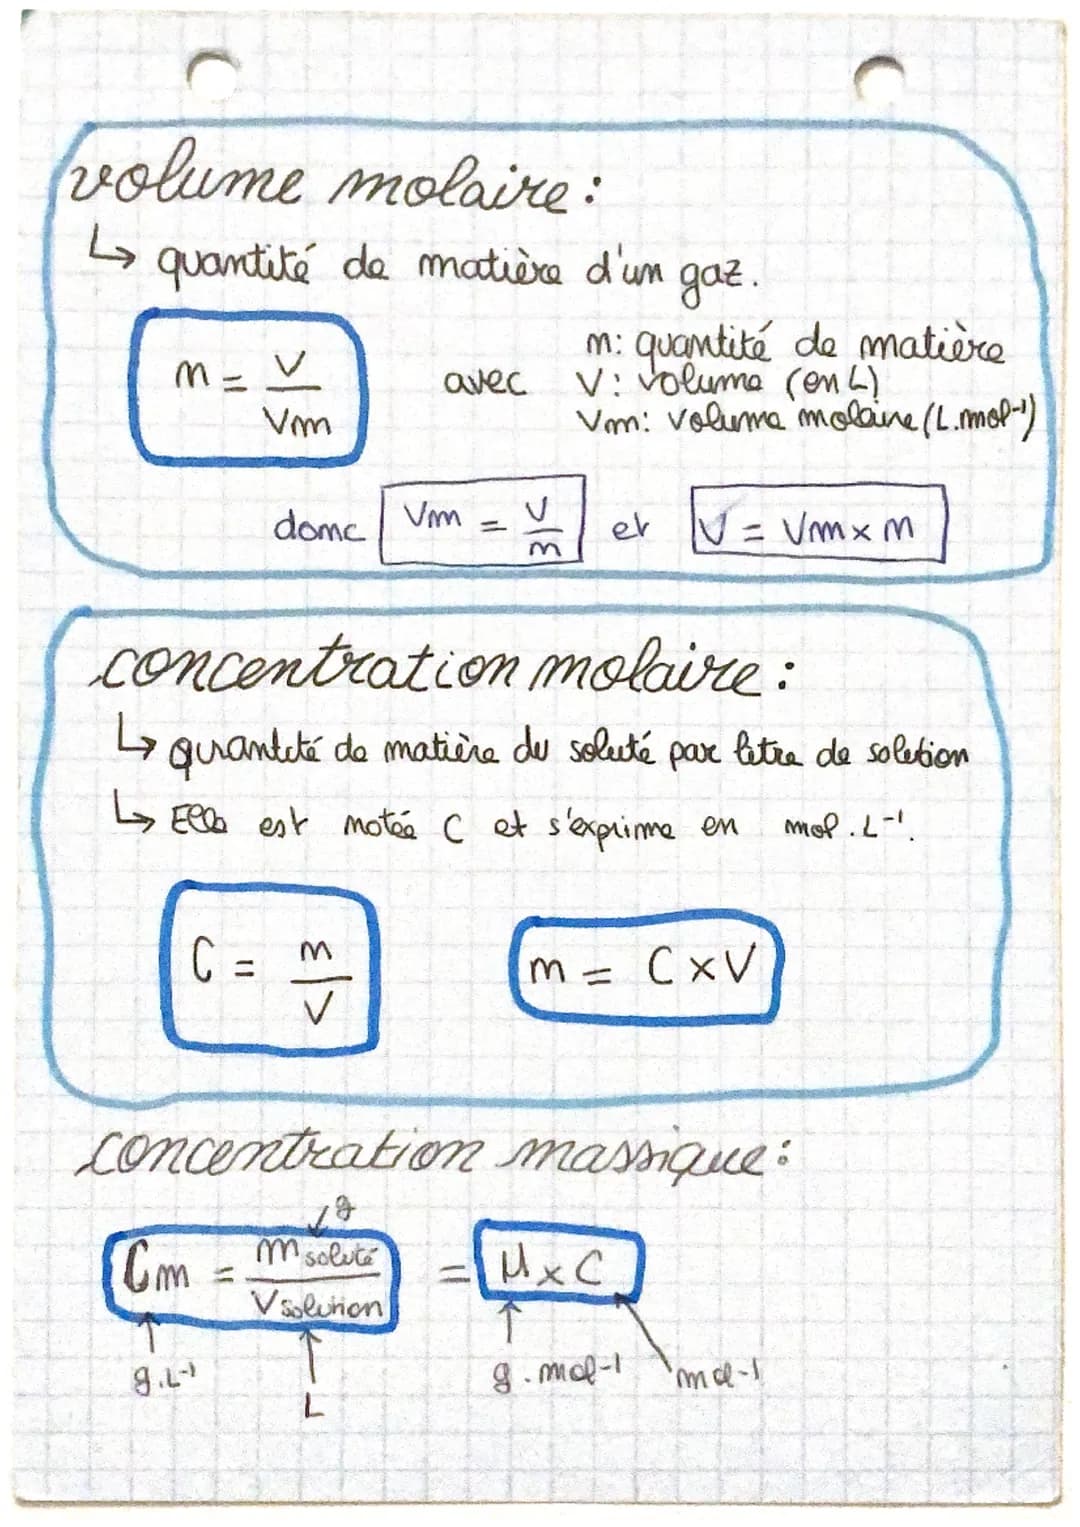 volume molaire :
↳ quantité de matière d'un gaz.
n = V / Vm
avec
n : quantité de matière
V : volume (en L)
Vm : volume molaire (L.mol-¹)
donc Vm = V / n et V = Vm x n
concentration molaire :
↳ quantité de matière du soluté par litre de solution
↳ Elle est notée C et s'exprime en mol.L-¹.
C = n / V
n = C x V
concentration massique :
g
Cm = m soluté / V solution = M x C
g.L-¹
L
g.mol-¹
mol-¹